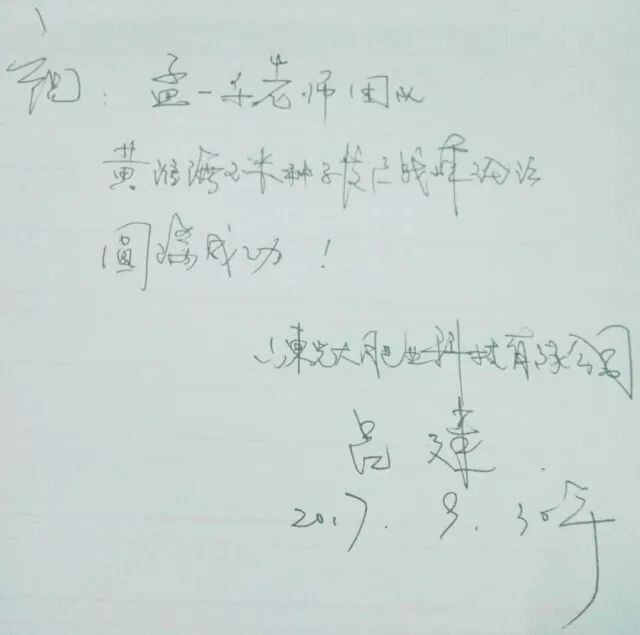 祝:孟一朵老师团队
黄淮海玉米种子发展战峰论坛
圆满成功!
山東光大肥业科技有限公司
吕建
2017.9.30午